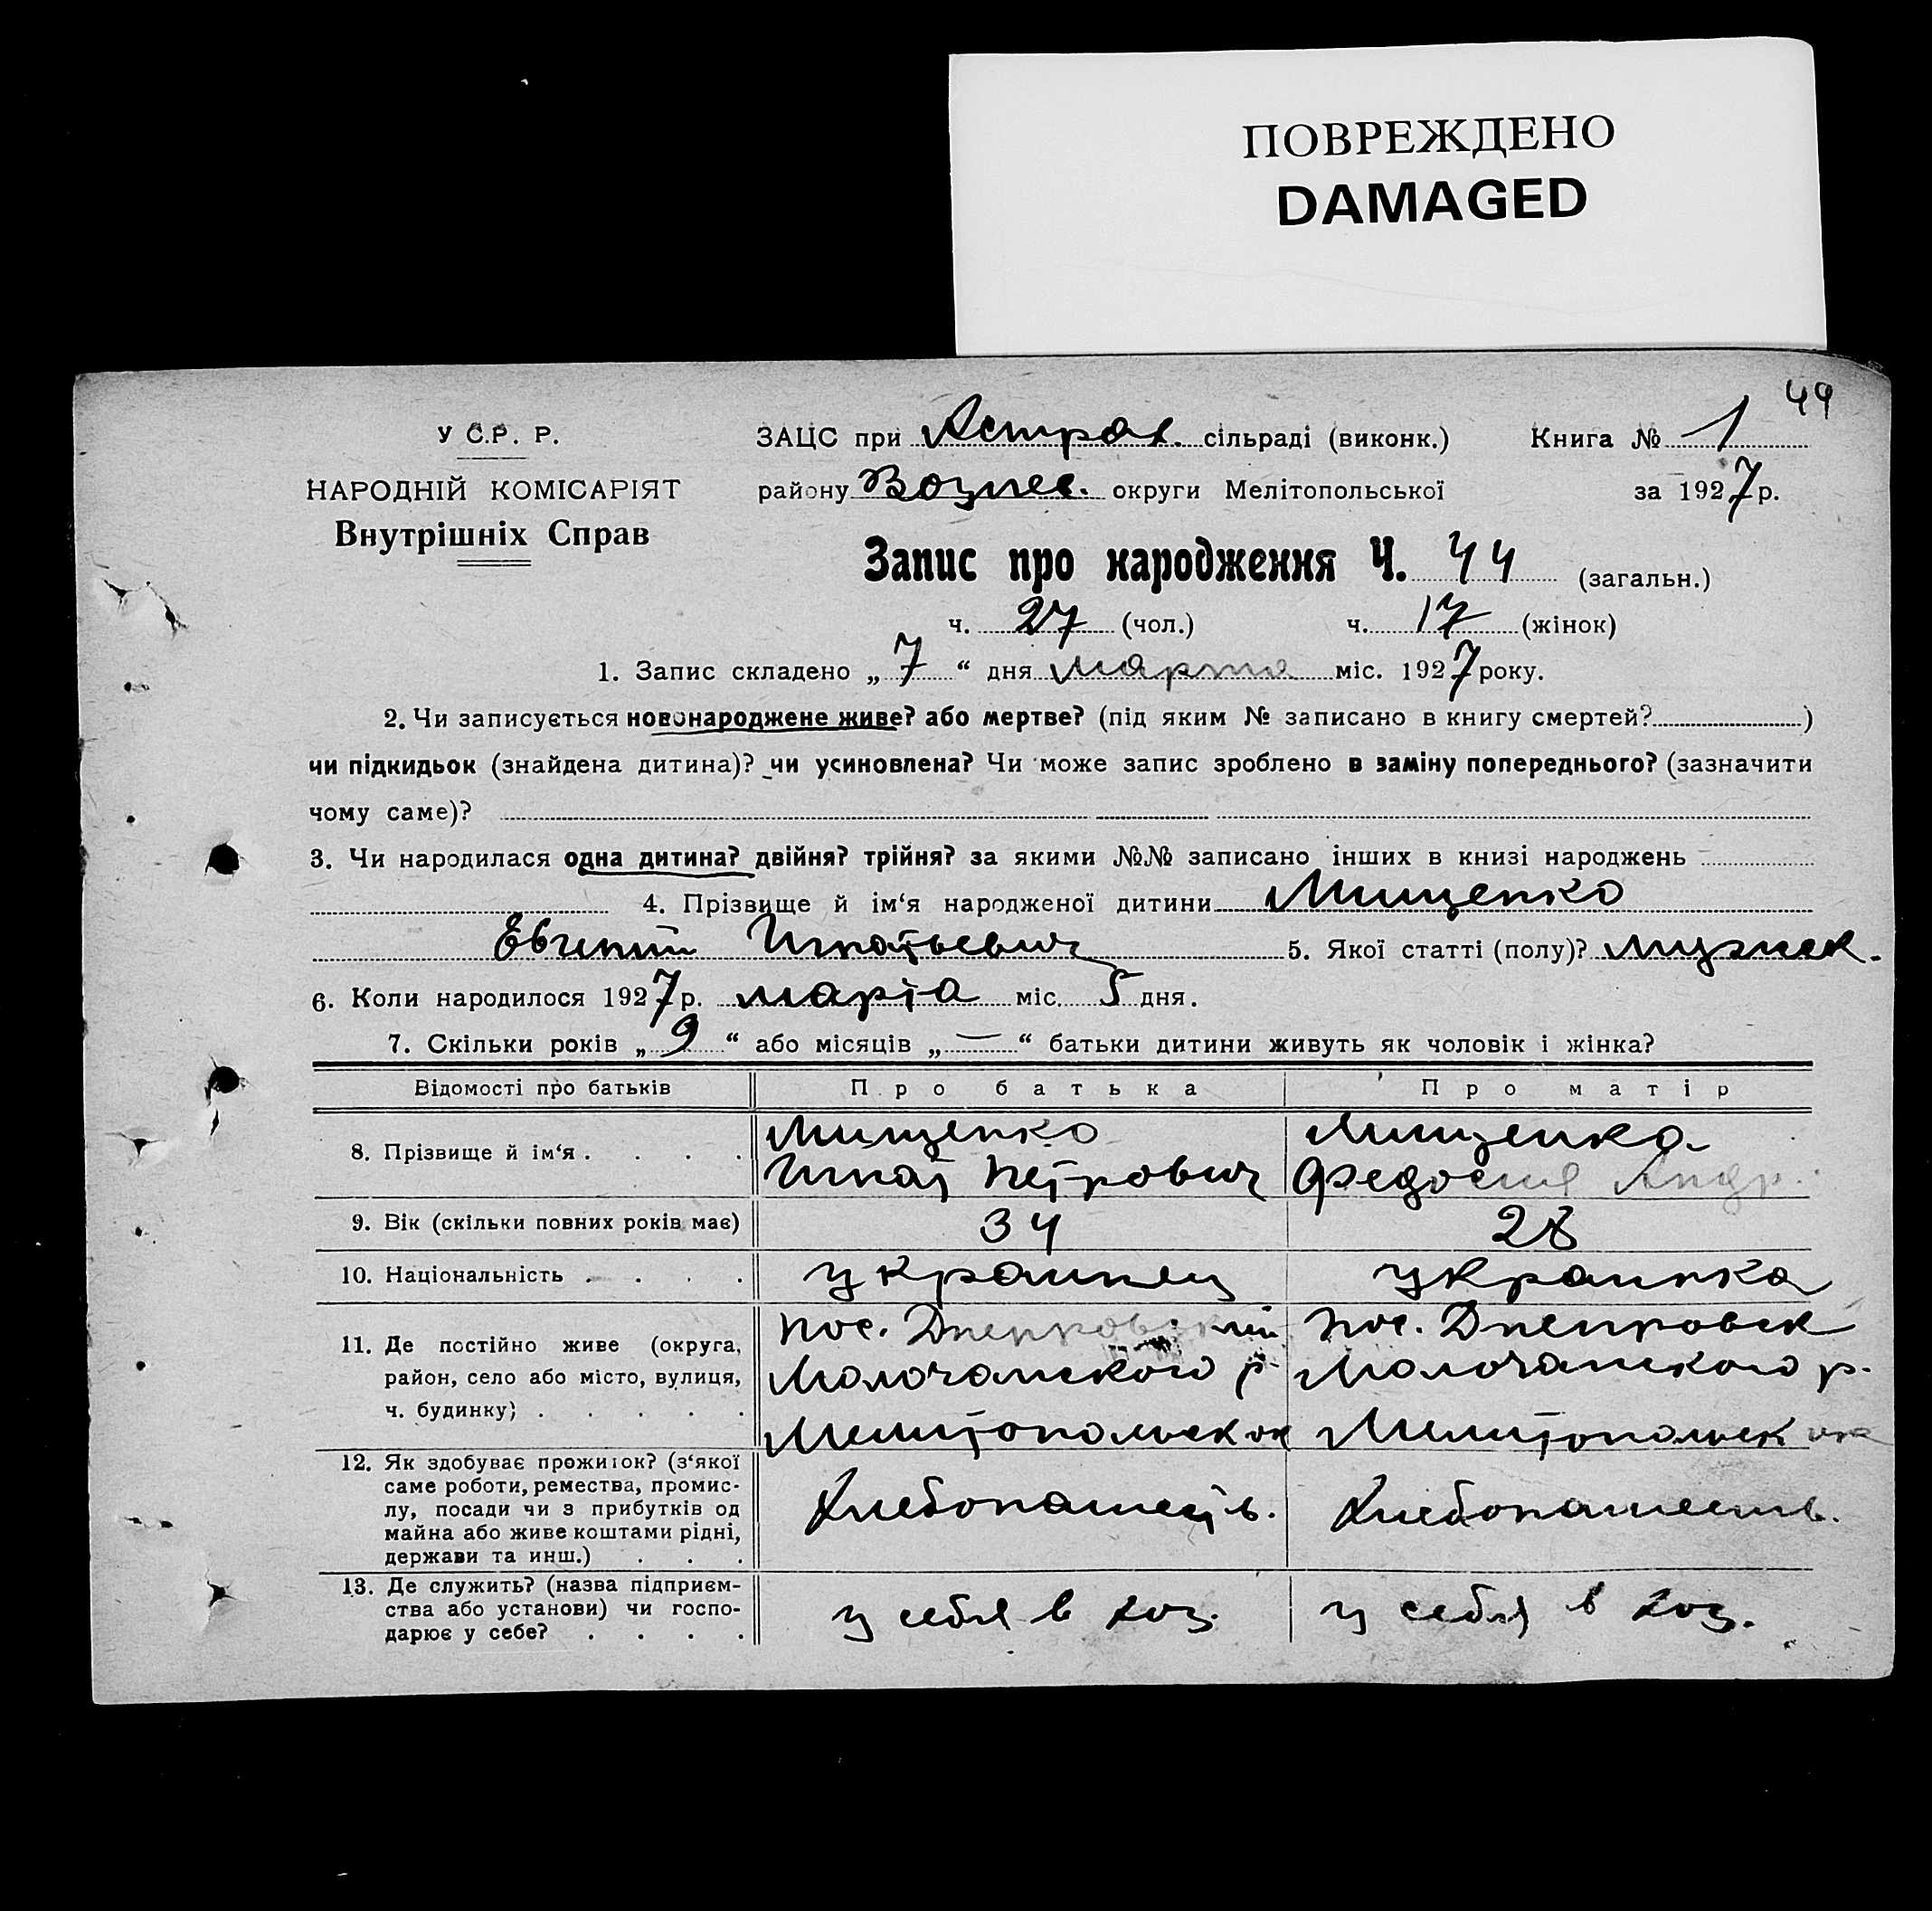 ПОВРЕЖДЕНО
DAMAGED
49
У С.Р. Р.
НАРОДНІЙ КОМІСАРІЯТ
Внутрішніх Справ
ЗАЦС при Астрах. сільраді (виконк.) Книга № 1
району Вознес. округи Мелітопольської за 1927 р.
Запис про народження Ч. 44 (загальн.)
ч. 27 (чол.) ч. 17 (жінок)
1. Запис складено „ 7 “ дня марта міс. 1927 року.
2. Чи записується новонароджене живе? або мертве? (під яким № записано в книгу смертей? )
чи підкидьок (знайдена дитина)? чи усиновлена? Чи може запис зроблено в заміну попереднього? (зазначити
чому саме)?
3. Чи народилася одна дитина? двійня? трійня? за якими №№ записано інших в книзі народжень
4. Прізвище й ім‘я народженої дитини Мищенко
Евгений Игнатьевич 5. Якої статті (полу)? мужск.
6. Коли народилося 1927 р. марта міс. 5 дня.
7. Скільки років „ 9 “ або місяців „ — “ батьки дитини живуть як чоловік і жінка?
Відомості про батьків Про батька Про матір
8. Прізвище й ім‘я . . . . Мищенко Игнат Петрович Мищенко Федосия Андр.
9. Вік (скільки повних років має) 34 28
10. Національність . . . . украинец украинка
11. Де постійно живе (округа,
район, село або місто, вулиця,
ч. будинку) . . . . .
пос. Днепровский
Молочанского р.
Мелитопольск ок
пос. Днепровск
Молочанского р.
Мелитопольск ок
12. Як здобуває прожиток? (з‘якої
саме роботи, ремества, промис-
лу, посади чи з прибутків од
майна або живе коштами рідні,
держави та инш.) . . .
Хлебопашеств. Хлебопашеств.
13. Де служить? (назва підприєм-
ства або установи) чи госпо-
дарює у себе? . . . .
у себя в хоз. у себя в хоз.